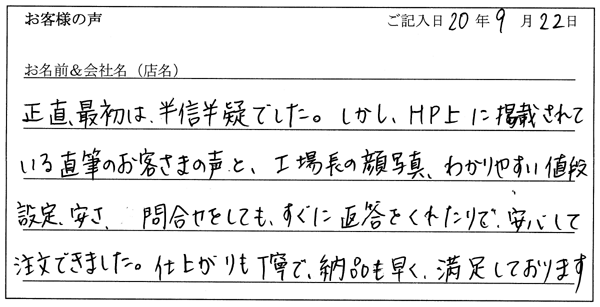 お客様の声 ご記入日 20 年 9 月 22 日
お名前&会社名(店名)
正直、最初は、半信半疑でした。しかし、HP上に掲載されて
いる直筆のお客さまの声と、工場長の顔写真、わかりやすい値段
設定、安さ、問合せをしても、すぐに返答をくれたりで、安心して
注文できました。仕上がりも丁寧で、納品も早く、満足しております